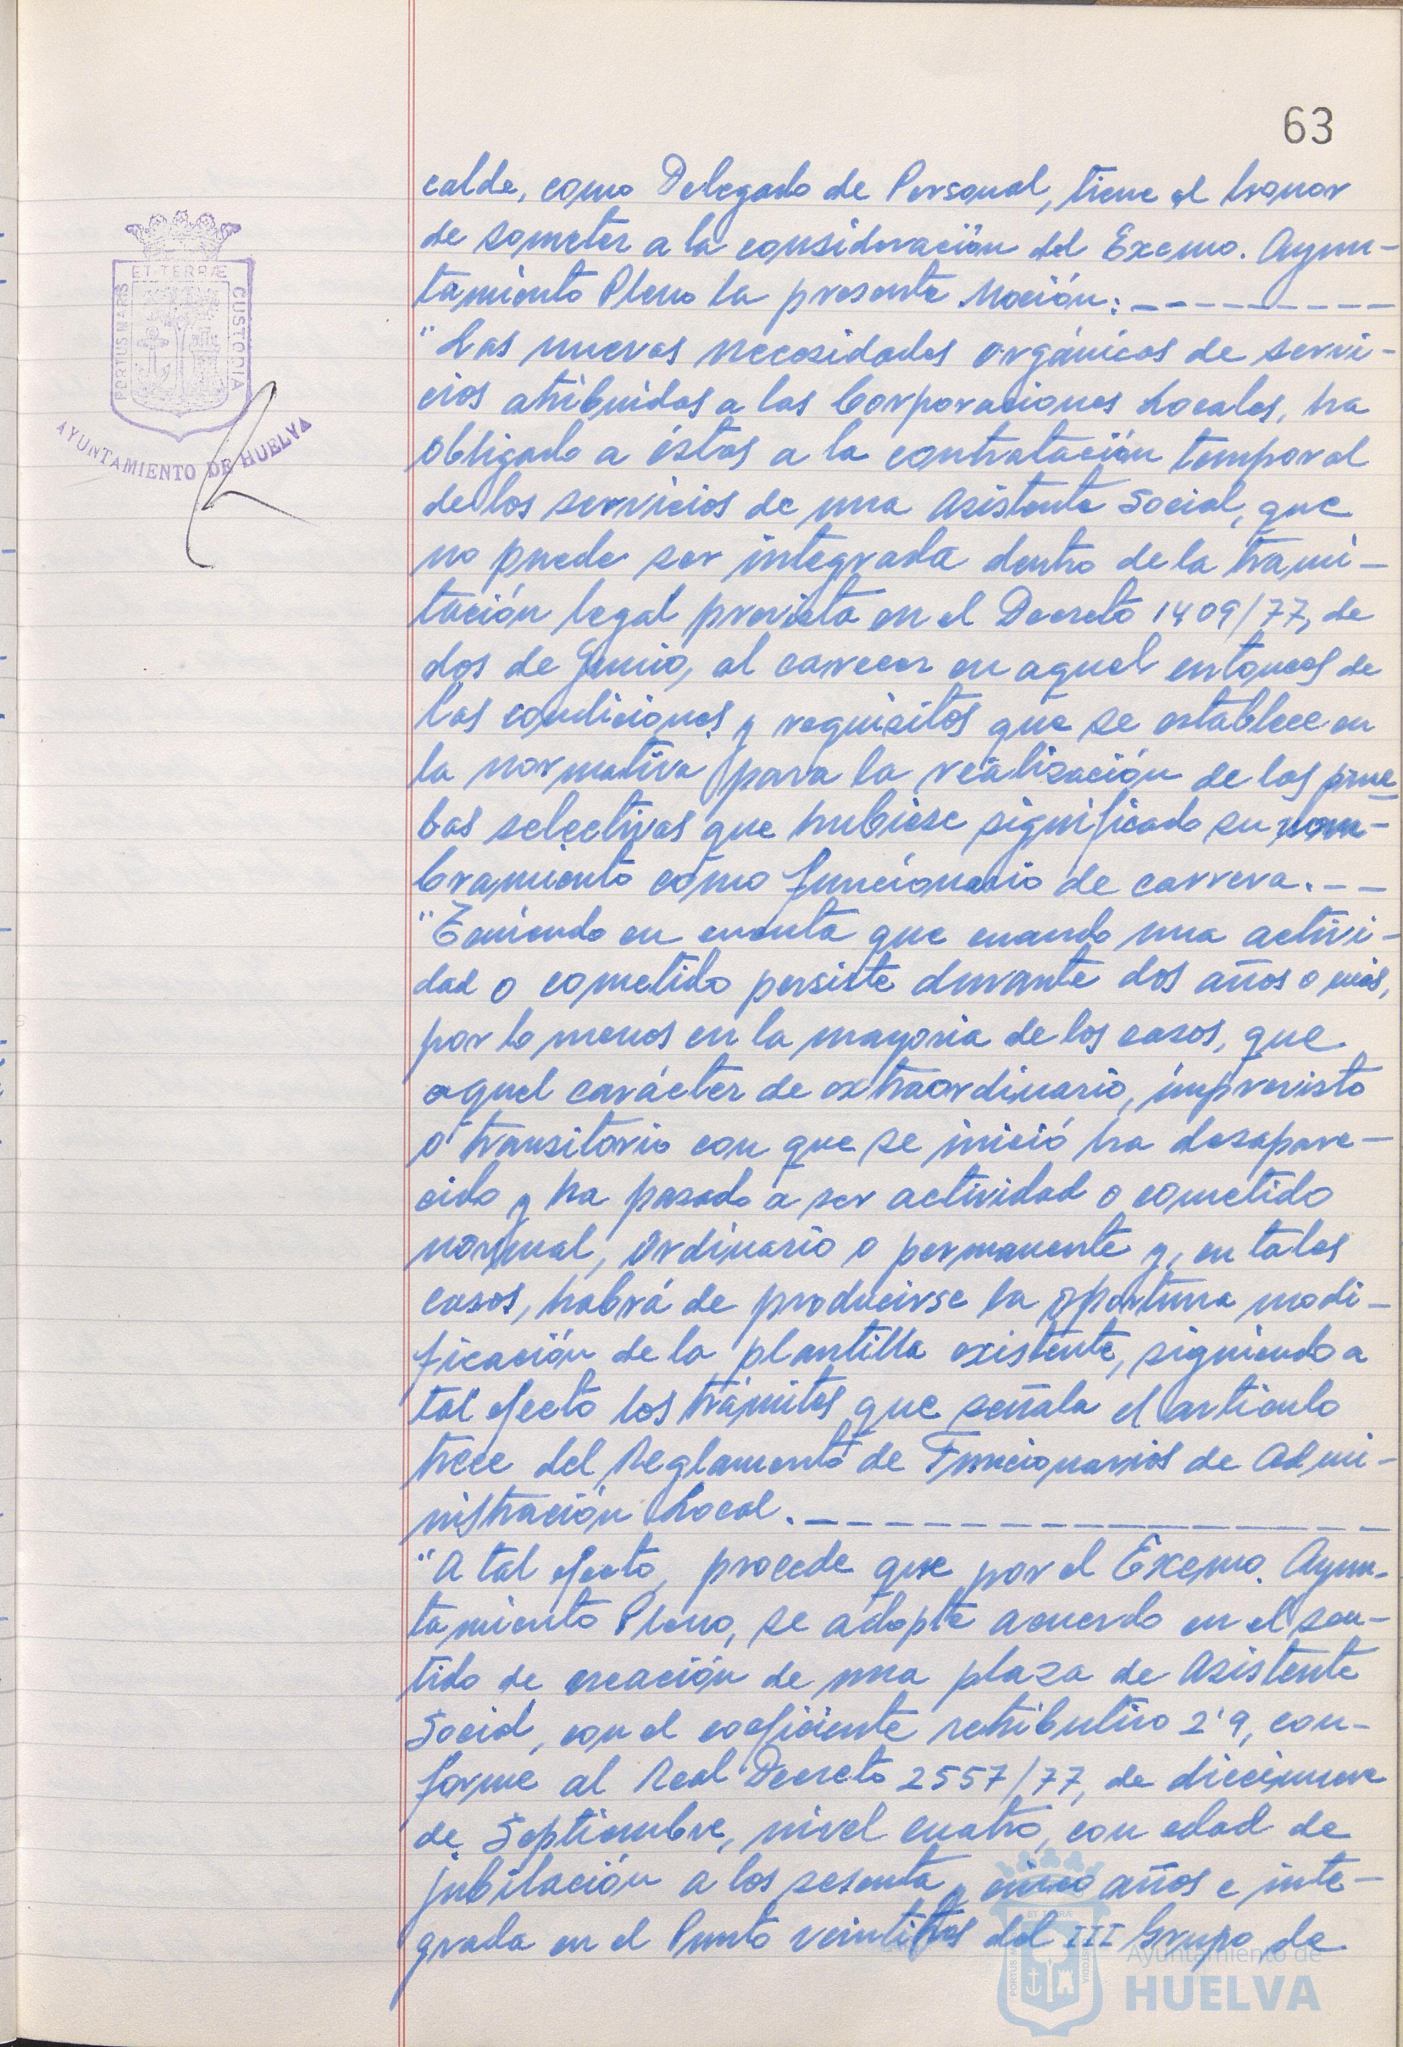 63
calde, como Delegado de Personal, tiene el honor
de someter a la consideración del Excmo. Ayun-
tamiento Pleno la presente Moción:
"Las nuevas necesidades orgánicas de servi-
cios atribuidas a las Corporaciones Locales, ha
obligado a éstas a la contratación temporal
de los servicios de una Asistente Social, que
no puede ser integrada dentro de la trami-
tación legal prevista en el Decreto 1409/77, de
dos de Junio, al carecer en aquel entonces de
las condiciones y requisitos que se establece en
la normativa para la realización de las prue
bas selectivas que hubiese significado su nom-
bramiento como funcionario de carrera.--
"Teniendo en cuenta que cuando una activi-
dad o cometido persiste durante dos años o más,
por lo menos en la mayoria de los casos, que
aquel carácter de extraordinario, imprevisto
o transitorio con que se inició ha desapare-
cido y ha pasado a ser actividad o cometido
normal, ordinario o permanente y, en tales
casos, habrá de producirse la oportuna modi-
ficación de la plantilla existente, siguiendo a
tal efecto los trámites que señala el articulo
trece del Reglamento de Funcionarios de Admi-
nistración Local.
"A tal efecto, procede que por el Excmo. Ayun-
tamiento Pleno, se adopte acuerdo en el sen-
tido de creación de una plaza de Asistente
Social, con el coeficiente retributivo 2'9, con-
forme al Real Decreto 2557/77, de diecinueve
de Septiembre, nivel cuatro, con edad de
jubilación a los sesenta y cinco años e inte-
grada en el Punto veintitres del III Grupo, de
ET TERRÆ
PORTUS MARIS
CUSTODIA
AYUNTAMIENTO DE HUELVA
Ayuntamiento de
HUELVA